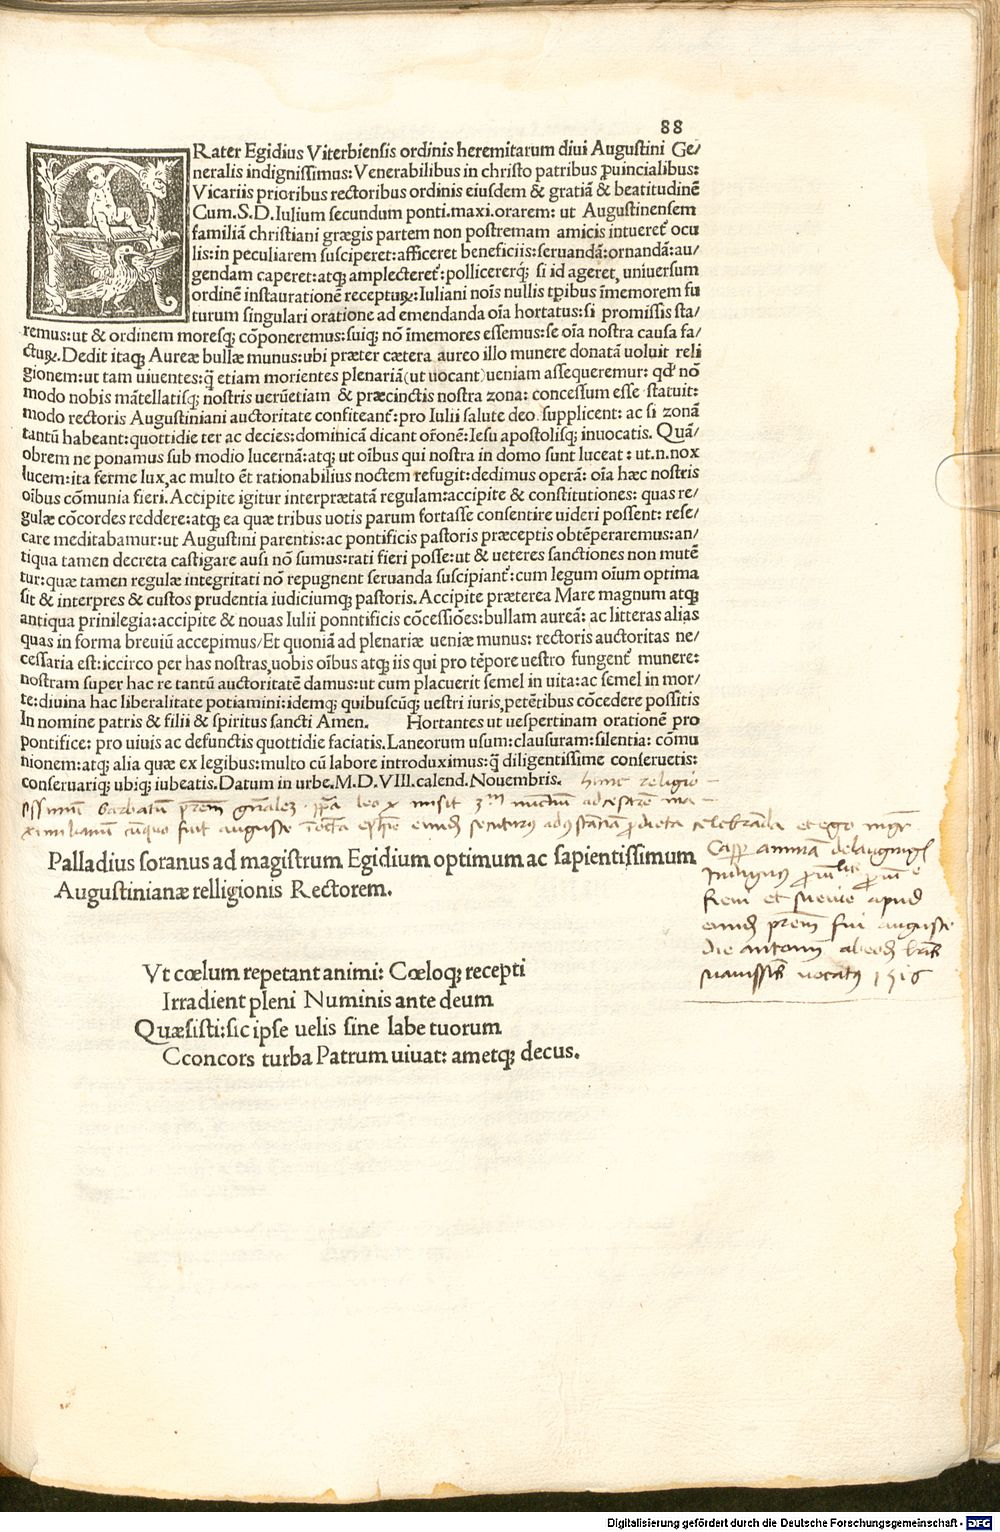 88
FRater Egidius Viterbiensis ordinis heremitarum diui Augustini Ge/
neralis indignissimus: Venerabilibus in christo patribus ꝓuincialibus:
Vicariis prioribus rectoribus ordinis eiusdem & gratiã & beatitudinẽ
Cum.S.D.Iulium secundum ponti.maxi.orarem: ut Augustinensem
familiã christiani grægis partem non postremam amicis intueret᷑ ocu
lis:in peculiarem susciperet:afficeret beneficiis:seruandã:ornandã:au/
gendam caperet:atqꝫ amplecteret᷑:pollicererqꝫ si id ageret, uniuersum
ordinẽ instaurationẽ recepturꝝ:Iuliani noĩs nullis tꝑibus ĩmemorem fu
turum singulari oratione ad emendanda oĩa hortatus:si promissis sta/
remus:ut & ordinem moresqꝫ cõponeremus:suiqꝫ nõ ĩmemores essemus:se oĩa nostra causa fa/
cturꝝ.Dedit itaqꝫ Aureæ bullæ munus:ubi præter cætera aureo illo munere donatã uoluit reli
gionem:ut tam uiuentes:q̃ etiam morientes plenariã(ut uocant)ueniam assequeremur: qđ nõ
modo nobis mãtellatisqꝫ nostris uerũetiam & præcinctis nostra zona: concessum esse statuit:
modo rectoris Augustiniani auctoritate confiteant᷑:pro Iulii salute deo supplicent: ac si zonã
tantũ habeant:quottidie ter ac decies:dominicã dicant or̃onẽ:Iesu apostolisqꝫ inuocatis. Quã/
obrem ne ponamus sub modio lucernã:atqꝫ ut oĩbus qui nostra in domo sunt luceat : ut.n.nox
lucem:ita ferme lux,ac multo ẽt rationabilius noctem refugit:dedimus operã: oĩa hæc nostris
oĩbus cõmunia fieri.Accipite igitur interprætatã regulam:accipite & constitutiones: quas re/
gulæ cõcordes reddere:atqꝫ ea quæ tribus uotis parum fortasse consentire uideri possent: rese/
care meditabamur:ut Augustini parentis:ac pontificis pastoris præceptis obtẽperaremus:an/
tiqua tamen decreta castigare ausi nõ sumus:rati fieri posse:ut & ueteres sanctiones non mutẽ
tur:quæ tamen regulæ integritati nõ repugnent seruanda suscipiant᷑:cum legum oĩum optima
sit & interpres & custos prudentia iudiciumqꝫ pastoris.Accipite præterea Mare magnum atqꝫ
antiqua prinilegia:accipite & nouas Iulii ponntificis cõcessiões:bullam aureã: ac litteras alias
quas in forma breuiũ accepimus/Et quoniã ad plenariæ ueniæ munus: rectoris auctoritas ne/
cessaria est:iccirco per has nostras,uobis oĩbus atqꝫ iis qui pro tẽpore uestro fungent᷑ munere:
nostram super hac re tantũ auctoritatẽ damus:ut cum placuerit semel in uita:ac semel in mor/
te:diuina hac liberalitate potiamini:idemqꝫ quibuscũqꝫ uestri iuris,petẽtibus cõcedere possitis
In nomine patris & filii & spiritus sancti Amen. Hortantes ut uespertinam orationẽ pro
pontifice: pro uiuis ac defunctis quottidie faciatis.Laneorum usum:clausuram:silentia: cõmu
nionem:atqꝫ alia quæ ex legibus:multo cũ labore introduximus:q̃ diligentissime conseruetis:
conseruariqꝫ ubiqꝫ iubeatis.Datum in urbe.M.D.VIII.calend.Nouembris. hunc religio-
ssimũ barbatũ prem gn̄alez leo x misit nunciũ ad cesarẽ ma-
ximilianũ fuit auguste secuturus celebrãda et ego mgr
Palladius soranus ad magistrum Egidium optimum ac sapientissimum
Augustinianæ relligionis Rectorem.
Casp amman de lauging
Indignus
fieri et apud
eund prem fui auguste
die antonii
suauissib uocatus 1516
Vt cœlum repetant animi: Cœloqꝫ recepti
Irradient pleni Numinis ante deum
Quæsisti:sic ipse uelis sine labe tuorum
Cconcors turba Patrum uiuat: ametqꝫ decus.
Digitalisierung gefördert durch die Deutsche Forschungsgemeinschaft - DFG